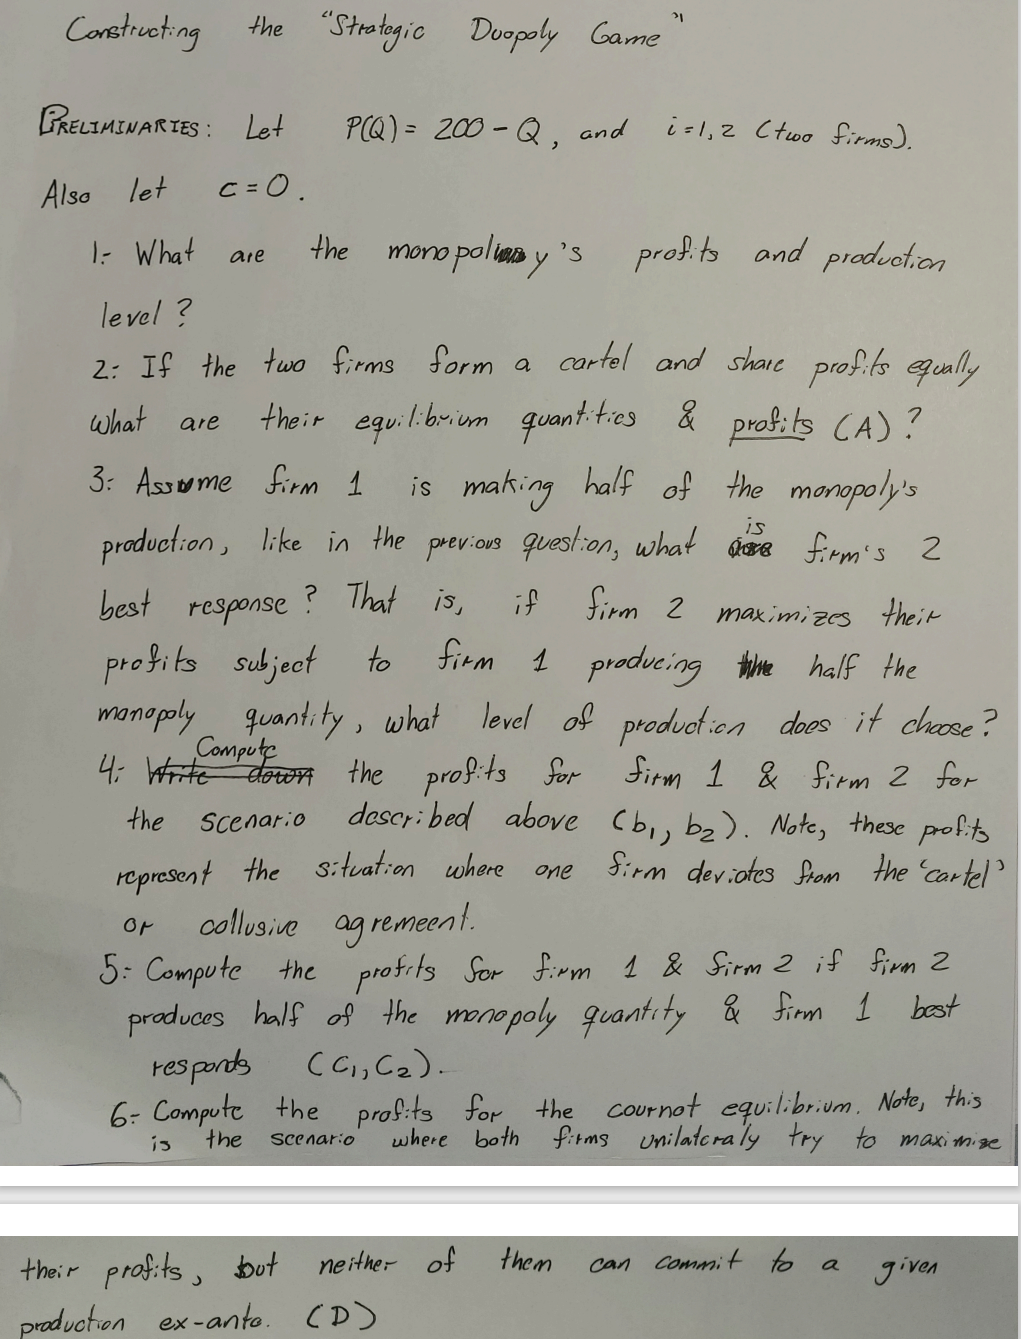 Constructing the "Strategic Duopoly Game"
PRELIMINARIES: Let P(Q) = 200 - Q, and i=1,2 (two firms).
Also let c=0.
1:- What are the monopoly's profits and production
level?
2:- If the two firms form a cartel and share profits equally
what are their equilibrium quantities & profits (A)?
3:- Assume firm 1 is making half of the monopoly's
production, like in the previous question, what is firm's 2
best response? That is, if firm 2 maximizes their
profits subject to firm 1 producing half the
monopoly quantity, what level of production does it choose?
4:- Compute the profits for firm 1 & firm 2 for
the scenario described above (b₁, b₂). Note, these profits
represent the situation where one firm deviates from the 'cartel'
or collusive agreement.
5:- Compute the profits for firm 1 & firm 2 if firm 2
produces half of the monopoly quantity & firm 1 best
responds (C₁, C₂).
6:- Compute the profits for the cournot equilibrium. Note, this
is the scenario where both firms unilateraly try to maximize
their profits, but neither of them can commit to a given
production ex-ante. (D)